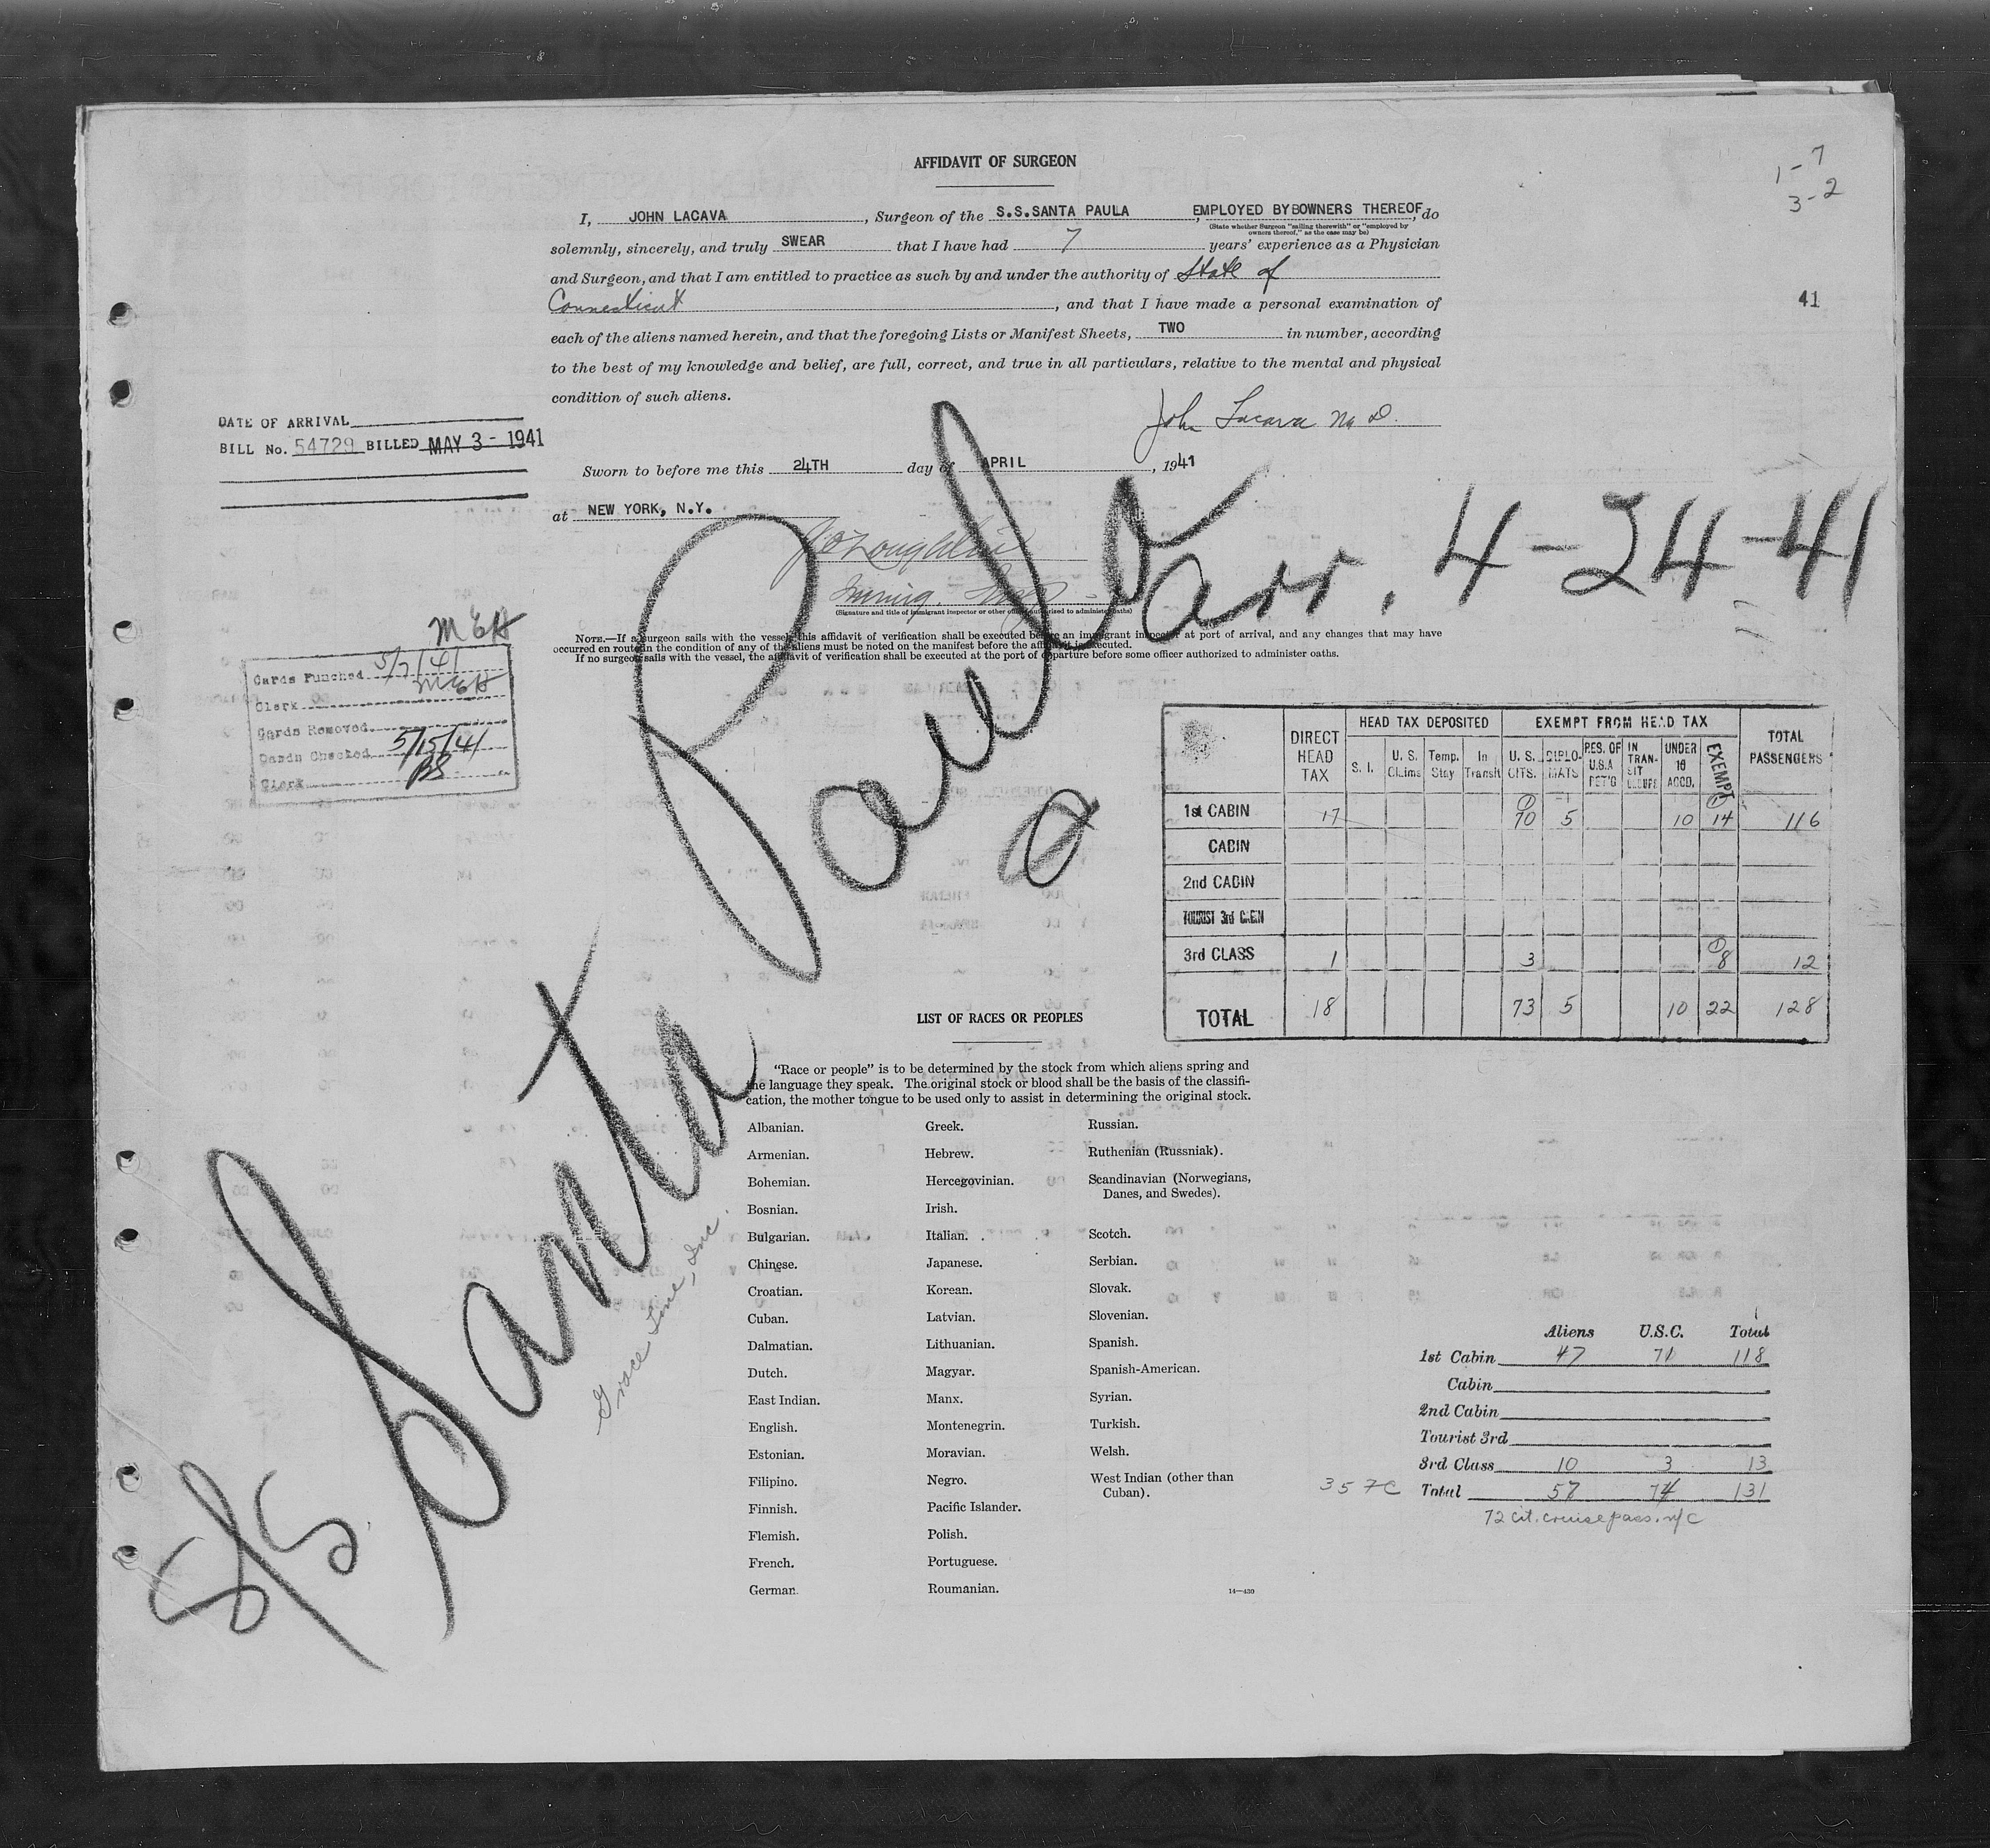 AFFIDAVIT OF SURGEON
1-7
3-2
I, JOHN LACAVA, Surgeon of the S.S.SANTA PAULA, EMPLOYED BYBOWNERS THEREOF, do
(State whether Surgeon "sailing therewith" or "employed by
owners thereof," as the case may be)
solemnly, sincerely, and truly SWEAR that I have had 7 years' experience as a Physician
and Surgeon, and that I am entitled to practice as such by and under the authority of State of
Connecticut, and that I have made a personal examination of
41
each of the aliens named herein, and that the foregoing Lists or Manifest Sheets, TWO in number, according
to the best of my knowledge and belief, are full, correct, and true in all particulars, relative to the mental and physical
condition of such aliens.
John Lacava M.D.
DATE OF ARRIVAL
BILL No. 54729 BILLED MAY 3 - 1941
Sworn to before me this 24TH day of APRIL, 1941
at NEW YORK, N.Y.
(Signature and title of immigrant inspector or other officer authorized to administer oaths)
NOTE.—If a surgeon sails with the vessel, this affidavit of verification shall be executed before an immigrant inspector at port of arrival, and any changes that may have
occurred en route in the condition of any of the aliens must be noted on the manifest before the affidavit is executed.
If no surgeon sails with the vessel, the affidavit of verification shall be executed at the port of departure before some officer authorized to administer oaths.
S/S Santa Paula arr. 4-24-41
Grace Line, Inc.
MEH
Cards Punched 5/7/41
Clerk MEH
Cards Removed
Cards Checked 5/15/41
Clerk BS
DIRECT HEAD TAX HEAD TAX DEPOSITED EXEMPT FROM HEAD TAX TOTAL PASSENGERS
S. I. U. S. Claims Temp. Stay In Transit U. S. CITS. DIPLOMATS RES. OF U.S.A RET'G IN TRANSIT UNDER 16 ACCD. EXEMPT
1st CABIN 17 70 5 10 14 116
CABIN
2nd CABIN
TOURIST 3rd CABIN
3rd CLASS 1 3 8 12
TOTAL 18 73 5 10 22 128
LIST OF RACES OR PEOPLES
"Race or people" is to be determined by the stock from which aliens spring and
the language they speak. The original stock or blood shall be the basis of the classifi-
cation, the mother tongue to be used only to assist in determining the original stock.
Albanian.
Armenian.
Bohemian.
Bosnian.
Bulgarian.
Chinese.
Croatian.
Cuban.
Dalmatian.
Dutch.
East Indian.
English.
Estonian.
Filipino.
Finnish.
Flemish.
French.
German.
Greek.
Hebrew.
Hercegovinian.
Irish.
Italian.
Japanese.
Korean.
Latvian.
Lithuanian.
Magyar.
Manx.
Montenegrin.
Moravian.
Negro.
Pacific Islander.
Polish.
Portuguese.
Roumanian.
Russian.
Ruthenian (Russniak).
Scandinavian (Norwegians,
Danes, and Swedes).
Scotch.
Serbian.
Slovak.
Slovenian.
Spanish.
Spanish-American.
Syrian.
Turkish.
Welsh.
West Indian (other than
Cuban).
14—430
Aliens U.S.C. Total
1st Cabin 47 71 118
Cabin
2nd Cabin
Tourist 3rd
3rd Class 10 3 13
357C Total 57 74 131
72 cit. cruise pass. n/c